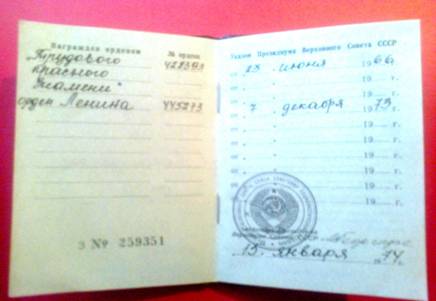 Награжден орденом № ордена
"Трудового 428363
красного
Знамени"
орден Ленина 445273
З № 259351
Указом Президиума Верховного Совета СССР
от „23" июня 1966 г.
от „ " 19 г.
от „ " 19 г.
от „7" декабря 1973 г.
от „ " 19 г.
от „ " 19 г.
от „ " 19 г.
от „ " 19 г.
от „ " 19 г.
19 г.
„15" января 1974 г.